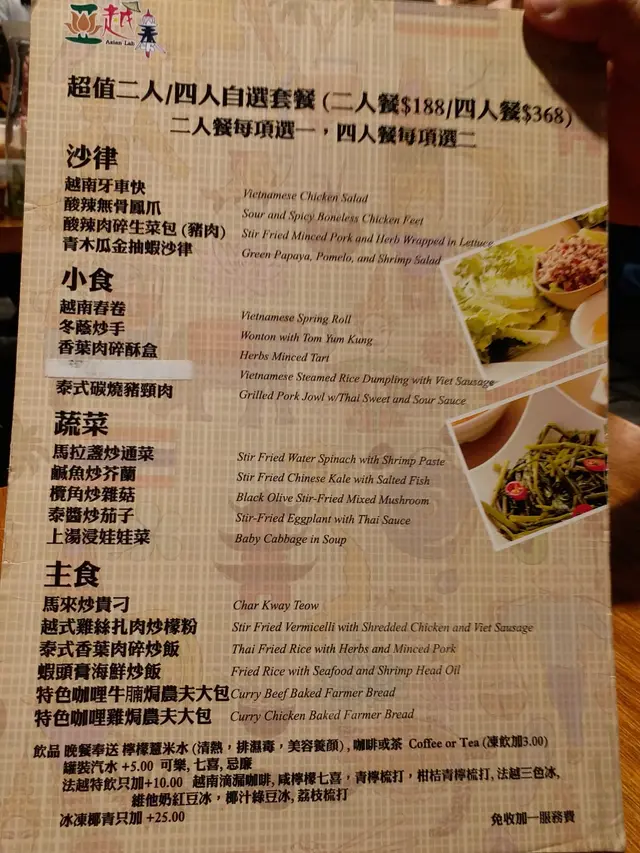 亞越泰
Asian Lab
超值二人/四人自選套餐 (二人餐$188/四人餐$368)
二人餐每項選一，四人餐每項選二
沙律
越南牙車快 Vietnamese Chicken Salad
酸辣無骨鳳爪 Sour and Spicy Boneless Chicken Feet
酸辣肉碎生菜包 (豬肉) Stir Fried Minced Pork and Herb Wrapped in Lettuce
青木瓜金抽蝦沙律 Green Papaya, Pomelo, and Shrimp Salad
小食
越南春卷 Vietnamese Spring Roll
冬蔭炒手 Wonton with Tom Yum Kung
香葉肉碎酥盒 Herbs Minced Tart
Vietnamese Steamed Rice Dumpling with Viet Sausage
泰式碳燒豬頸肉 Grilled Pork Jowl w/Thai Sweet and Sour Sauce
蔬菜
馬拉盞炒通菜 Stir Fried Water Spinach with Shrimp Paste
鹹魚炒芥蘭 Stir Fried Chinese Kale with Salted Fish
欖角炒雜菇 Black Olive Stir-Fried Mixed Mushroom
泰醬炒茄子 Stir-Fried Eggplant with Thai Sauce
上湯浸娃娃菜 Baby Cabbage in Soup
主食
馬來炒貴刁 Char Kway Teow
越式雞絲扎肉炒檬粉 Stir Fried Vermicelli with Shredded Chicken and Viet Sausage
泰式香葉肉碎炒飯 Thai Fried Rice with Herbs and Minced Pork
蝦頭膏海鮮炒飯 Fried Rice with Seafood and Shrimp Head Oil
特色咖哩牛腩焗農夫大包 Curry Beef Baked Farmer Bread
特色咖哩雞焗農夫大包 Curry Chicken Baked Farmer Bread
飲品 晚餐奉送 檸檬薏米水 (清熱，排濕毒，美容養顏) , 咖啡或茶 Coffee or Tea (凍飲加3.00)
罐裝汽水 +5.00 可樂, 七喜, 忌廉
法越特飲只加+10.00 越南滴漏咖啡, 咸檸檬七喜，青檸梳打，柑桔青檸梳打, 法越三色冰,
維他奶紅豆冰，椰汁綠豆冰, 荔枝梳打
冰凍椰青只加 +25.00
免收加一服務費